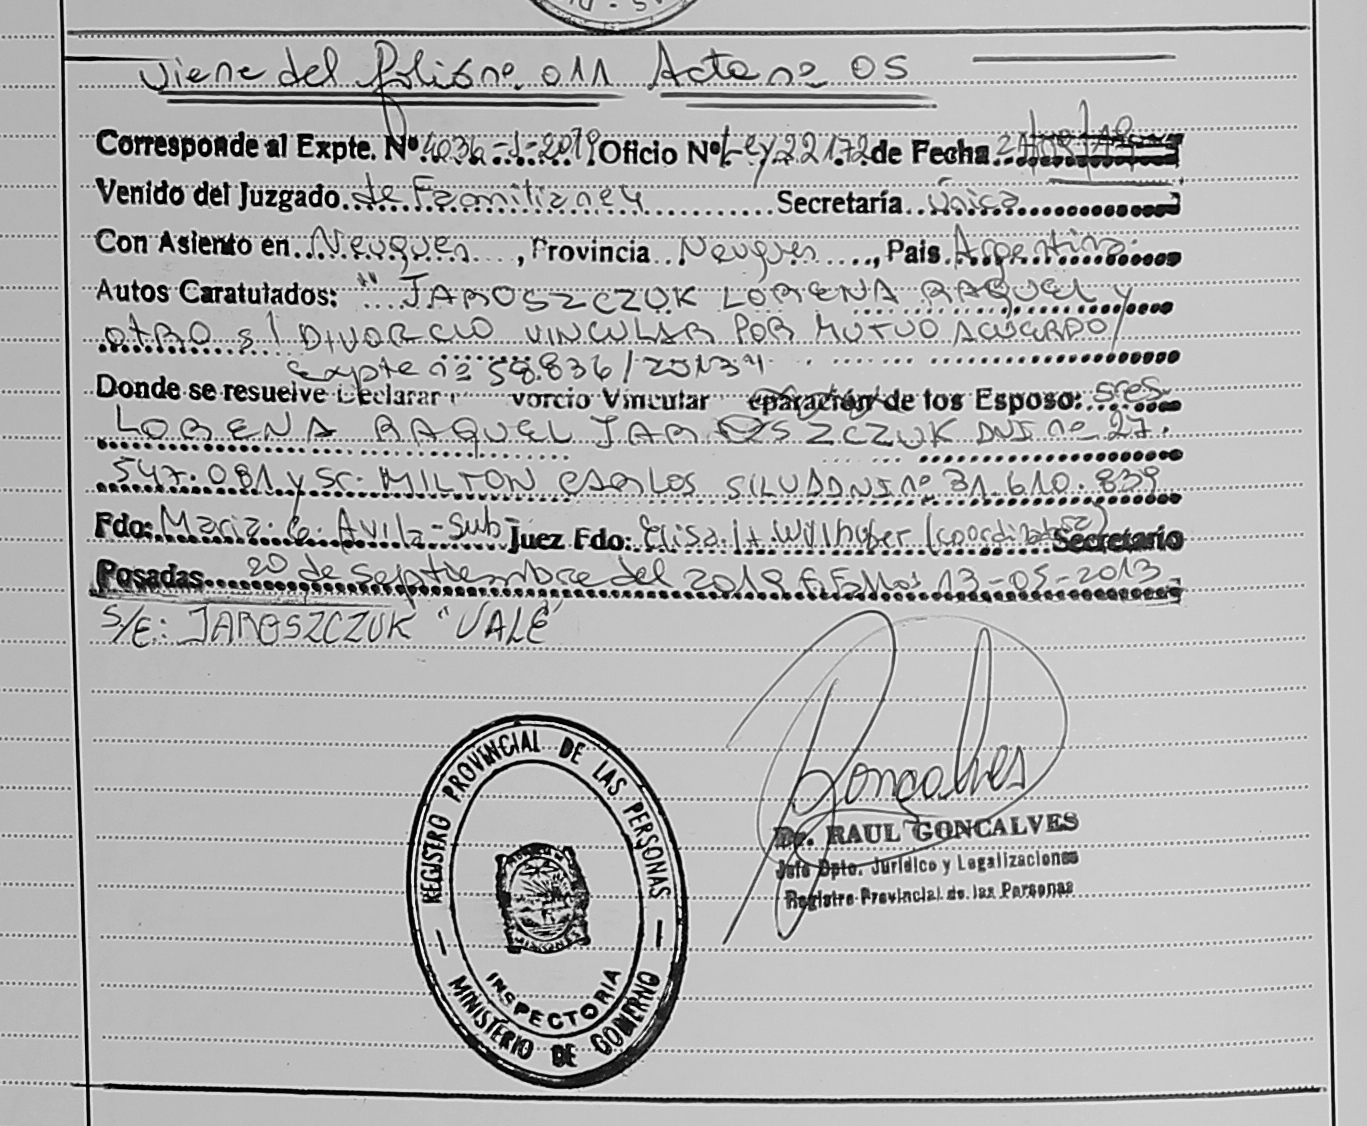 Viene del folio nº 011 Acta nº 05
Corresponde al Expte. Nº 4036-J-2019 Oficio Nº Ley 22172 de Fecha
Venido del Juzgado de Familia nº 4 Secretaría única
Con Asiento en Neuquen, Provincia Neuquen, País Argentina.
Autos Caratulados: "JAROSZCZUK LORENA RAQUEL y
OTRO s/ DIVORCIO VINCULAR POR MUTUO ACUERDO/
expte nº 58.836/2013"
Donde se resuelve Declarar vorcio Vincular eparación de los Esposo: sres.
LORENA RAQUEL JAROSZCZUK DNI nº 27.
547.081 y Sr. MILTON CARLOS SILVA DNI nº 31.610.839
Fdo: Maria G. Avila - Sub Juez Fdo: Elisa H Willhuber (coordinadora) Secretario
Posadas 20 de Septiembre del 2019 13-05-2013
S/E: JAROSZCZUK "VALE"
REGISTRO PROVINCIAL DE LAS PERSONAS
MISIONES
INSPECTORIA
MINISTERIO DE GOBIERNO
Goncalves
Dr. RAUL GONCALVES
Jefe Dpto. Jurídico y Legalizaciones
Registro Provincial de las Personas